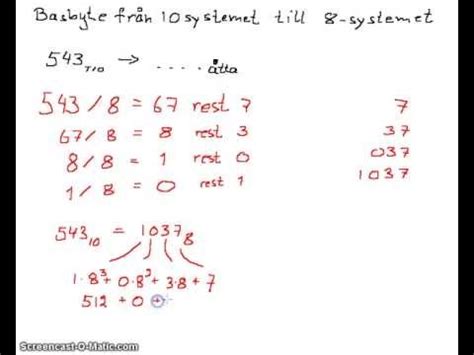 Basbyte från 10 systemet till 8-systemet
543 TIO → .... åtta
543 / 8 = 67 rest 7 7
67 / 8 = 8 rest 3 37
8 / 8 = 1 rest 0 037
1 / 8 = 0 rest 1 1037
543₁₀ = 1037₈
1·8³ + 0·8² + 3·8 + 7
512 + 0 +
Screencast-O-Matic.com